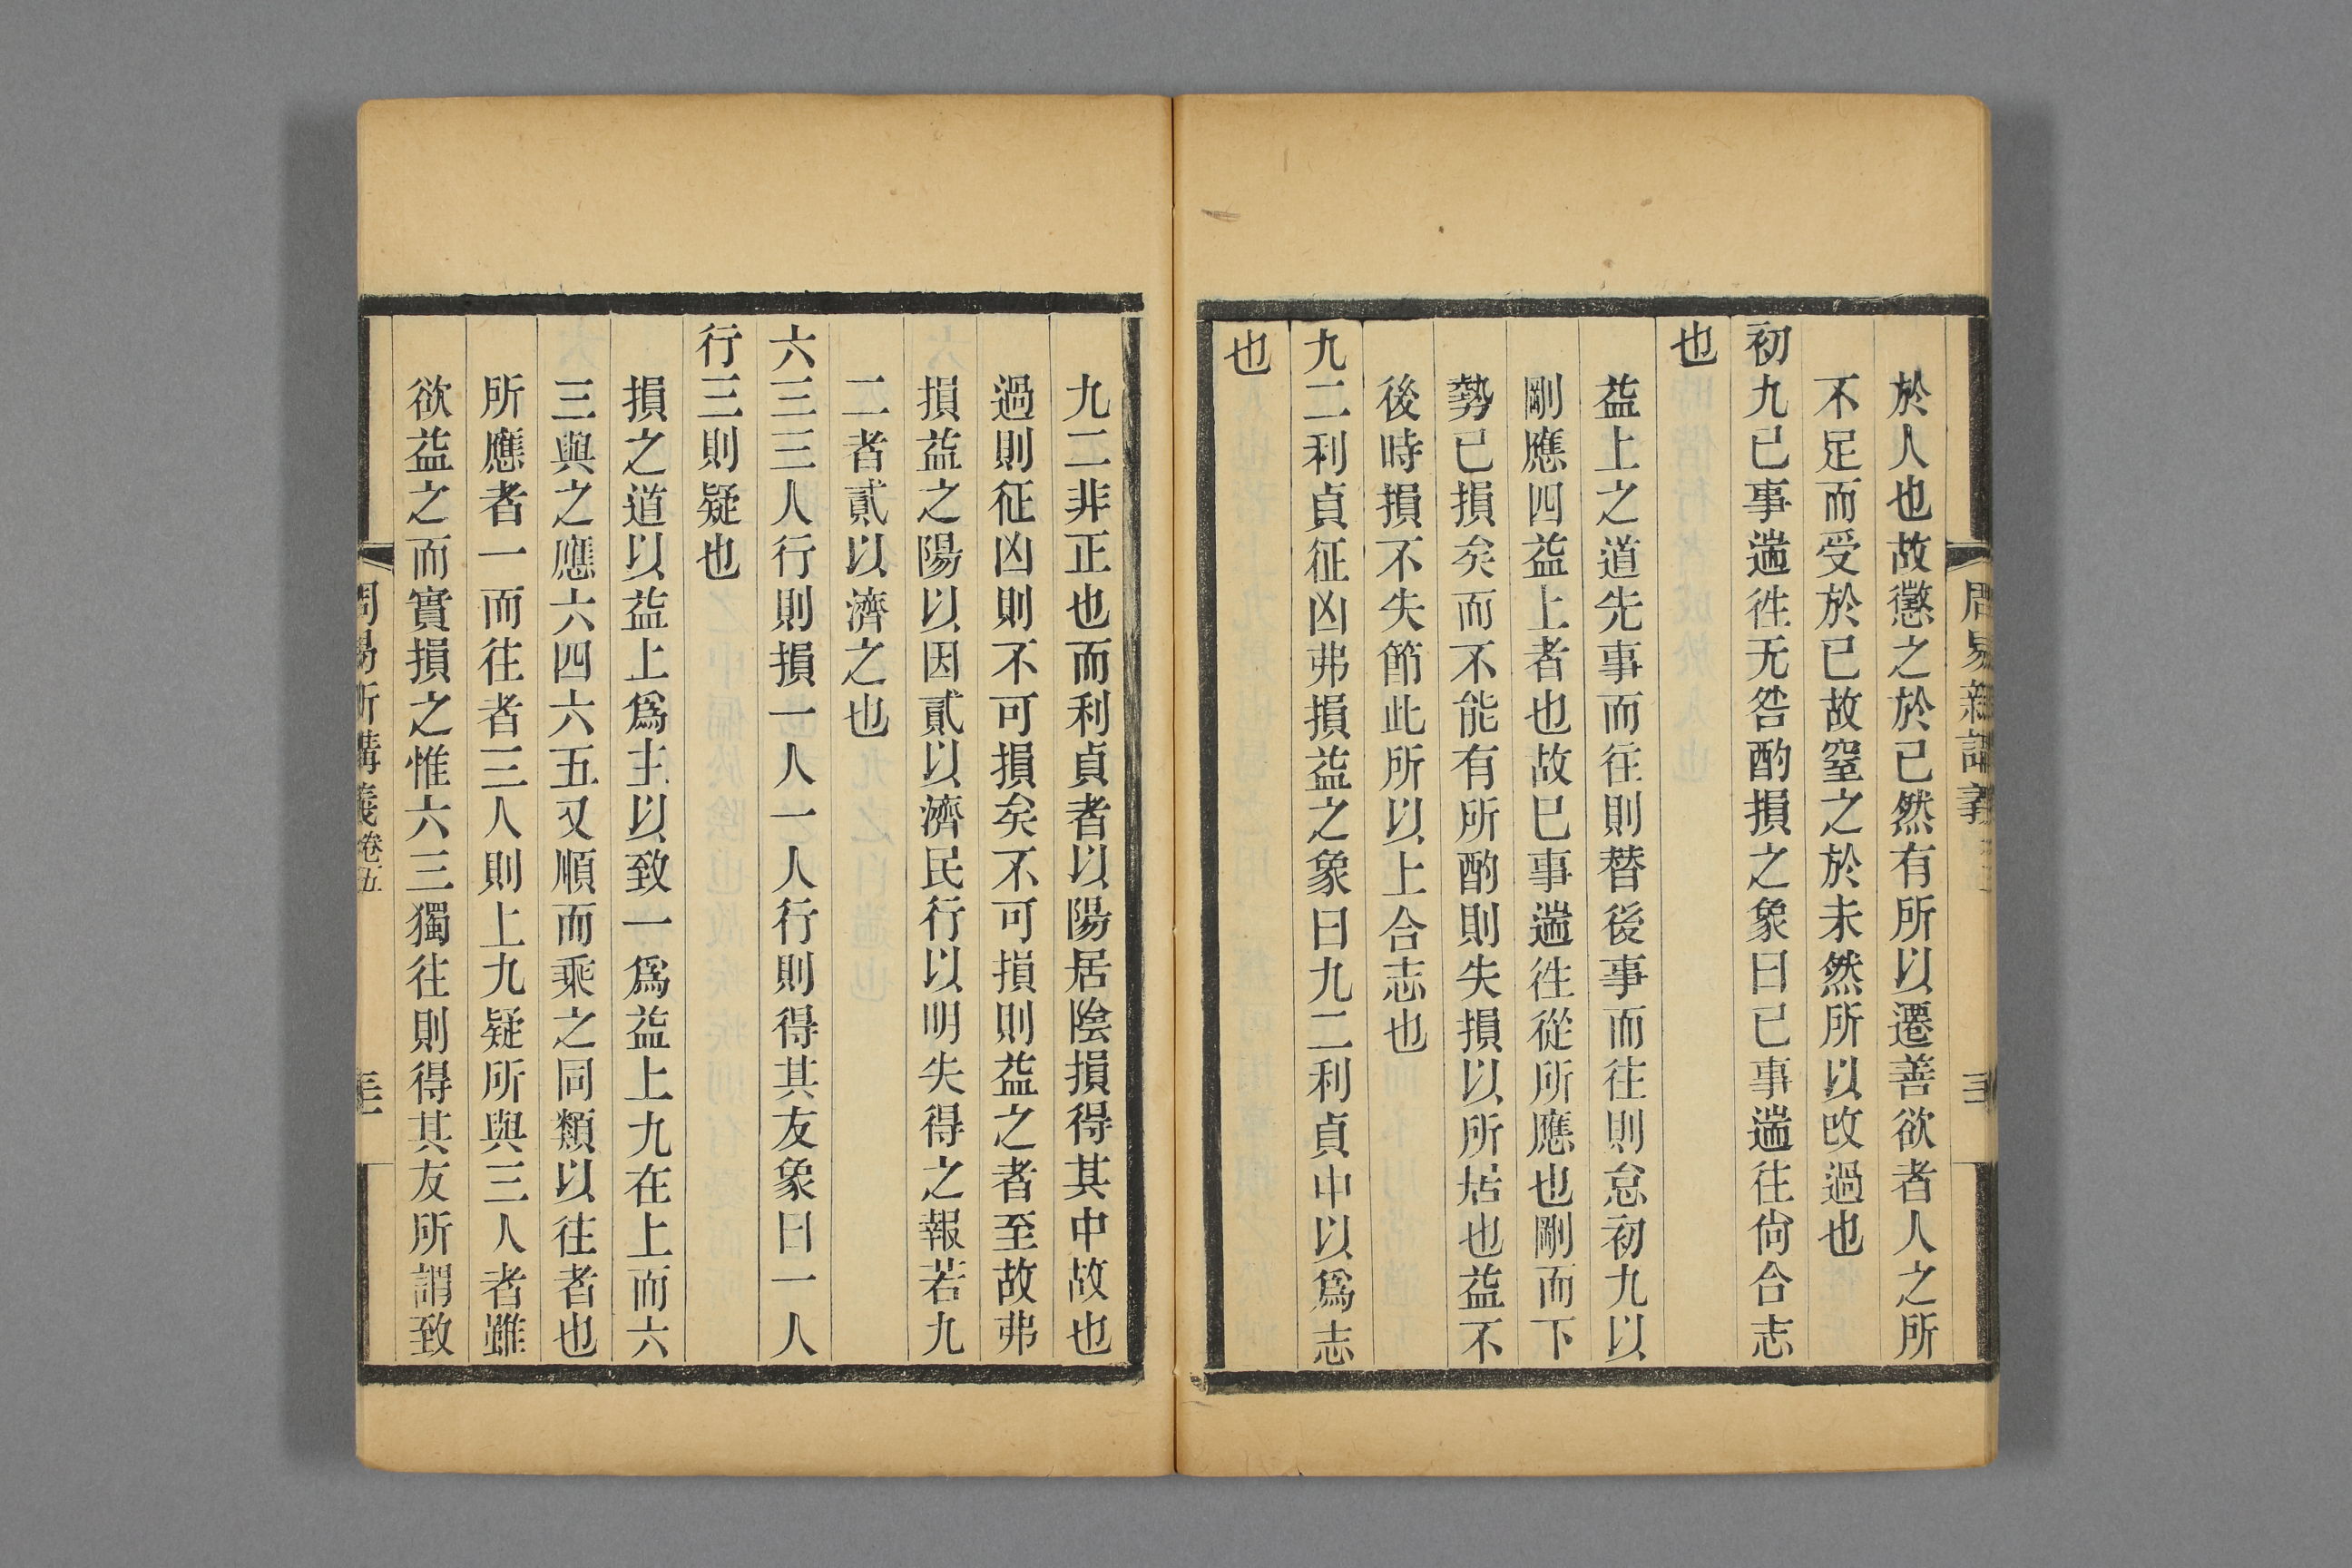 於人也故懲之於已然有所以遷善欲者人之所
不足而受於已故窒之於未然所以改過也
初九已事遄徃无咎酌損之象曰已事遄往尙合志
也
益上之道先事而往則替後事而往則怠初九以
剛應四益上者也故巳事遄徃從所應也剛而下
勢已損矣而不能有所酌則失損以所居也益不
後時損不失節此所以上合志也
九二利貞征凶弗損益之象曰九二利貞中以爲志
也
九二非正也而利貞者以陽居陰損得其中故也
過則征凶則不可損矣不可損則益之者至故弗
損益之陽以因貳以濟民行以明失得之報若九
二者貳以濟之也
六三三人行則損一人一人行則得其友象曰一人
行三則疑也
損之道以益上爲主以致一爲益上九在上而六
三與之應六四六五又順而乘之同類以往者也
所應者一而往者三人則上九疑所與三人者雖
欲益之而實損之惟六三獨往則得其友所謂致
周易新講義卷五